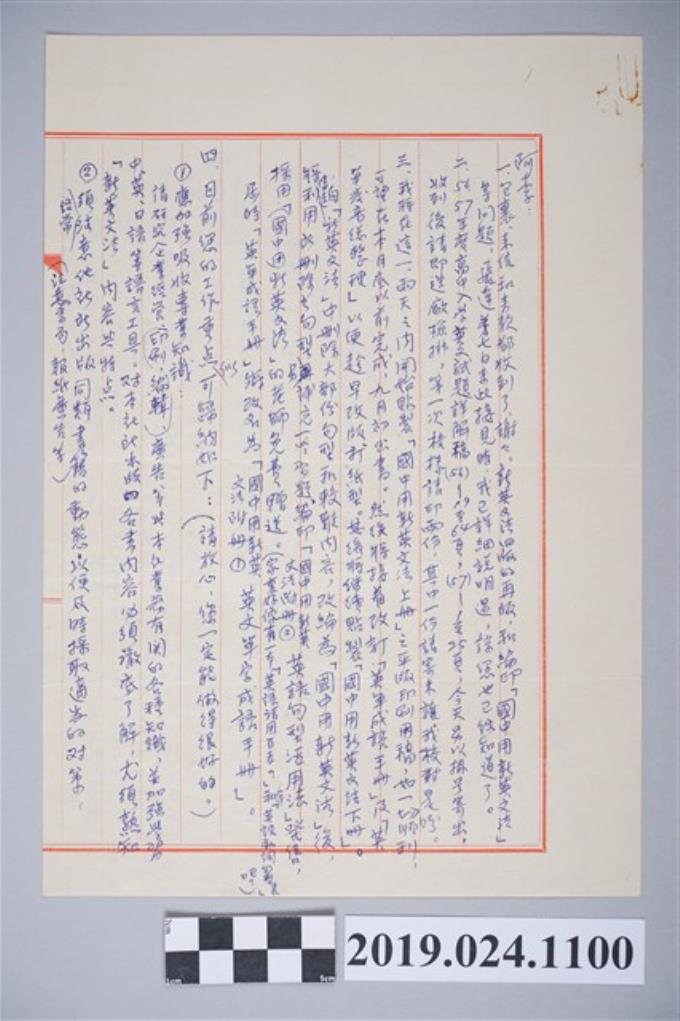 阿李：
一、包裹、來信和書款都收到了，謝謝。新英文法四版的再版，和編印「國中用新英文法」
等問題，張達華七日來此接見時，我已詳細說明過，諒您也已經知道了。
二、56、57年度高中入學英文試題詳解稿(56)—19至64頁，(57)—1至25頁，今天另以掛號寄出，
收到後請即送廠檢排，第一次校樣請印兩份，其中一份請寄來讓我校對是盼。
三、我將在這一、兩天之內開始貼製「國中用新英文法上冊」之平版印刷用稿，如一切順利，
可望在本月底以前完成，九月初出書。然後將接著改訂「英單成語手冊」及「英
單疑義總整理」以便趁早改版、打紙型。其後將繼續貼製「國中用新英文法下冊」。
自「新英文法」中刪除大部份句型和較難內容，改編為「國中用新英文法」後，
利用此刪除之句型，另補充一些習題，編印「國中用新英文法附冊② 英語句型活用法」發售，
採用「國中用新英文法」的老師免費贈送。
屆時「英單成語手冊」將改名為「國中用新英文法附冊① 英文單字成語手冊」。
四、目前您的工作重點可歸納如下：（請放心，您一定能做得很好的。）
① 應加強吸收專業知識：
請研究企業經營、印刷、編輯、廣告等與本社業務有關的各種知識，並加強學習
中、英、日語等語言工具。對本社出版的各書內容必須澈底了解，尤須熟知
「新英文法」內容與特点。
② 須經常注意他社新出版同類書籍的動態，以便及時採取適當的對策，
（注意書局、報紙廣告等）
2019.024.1100